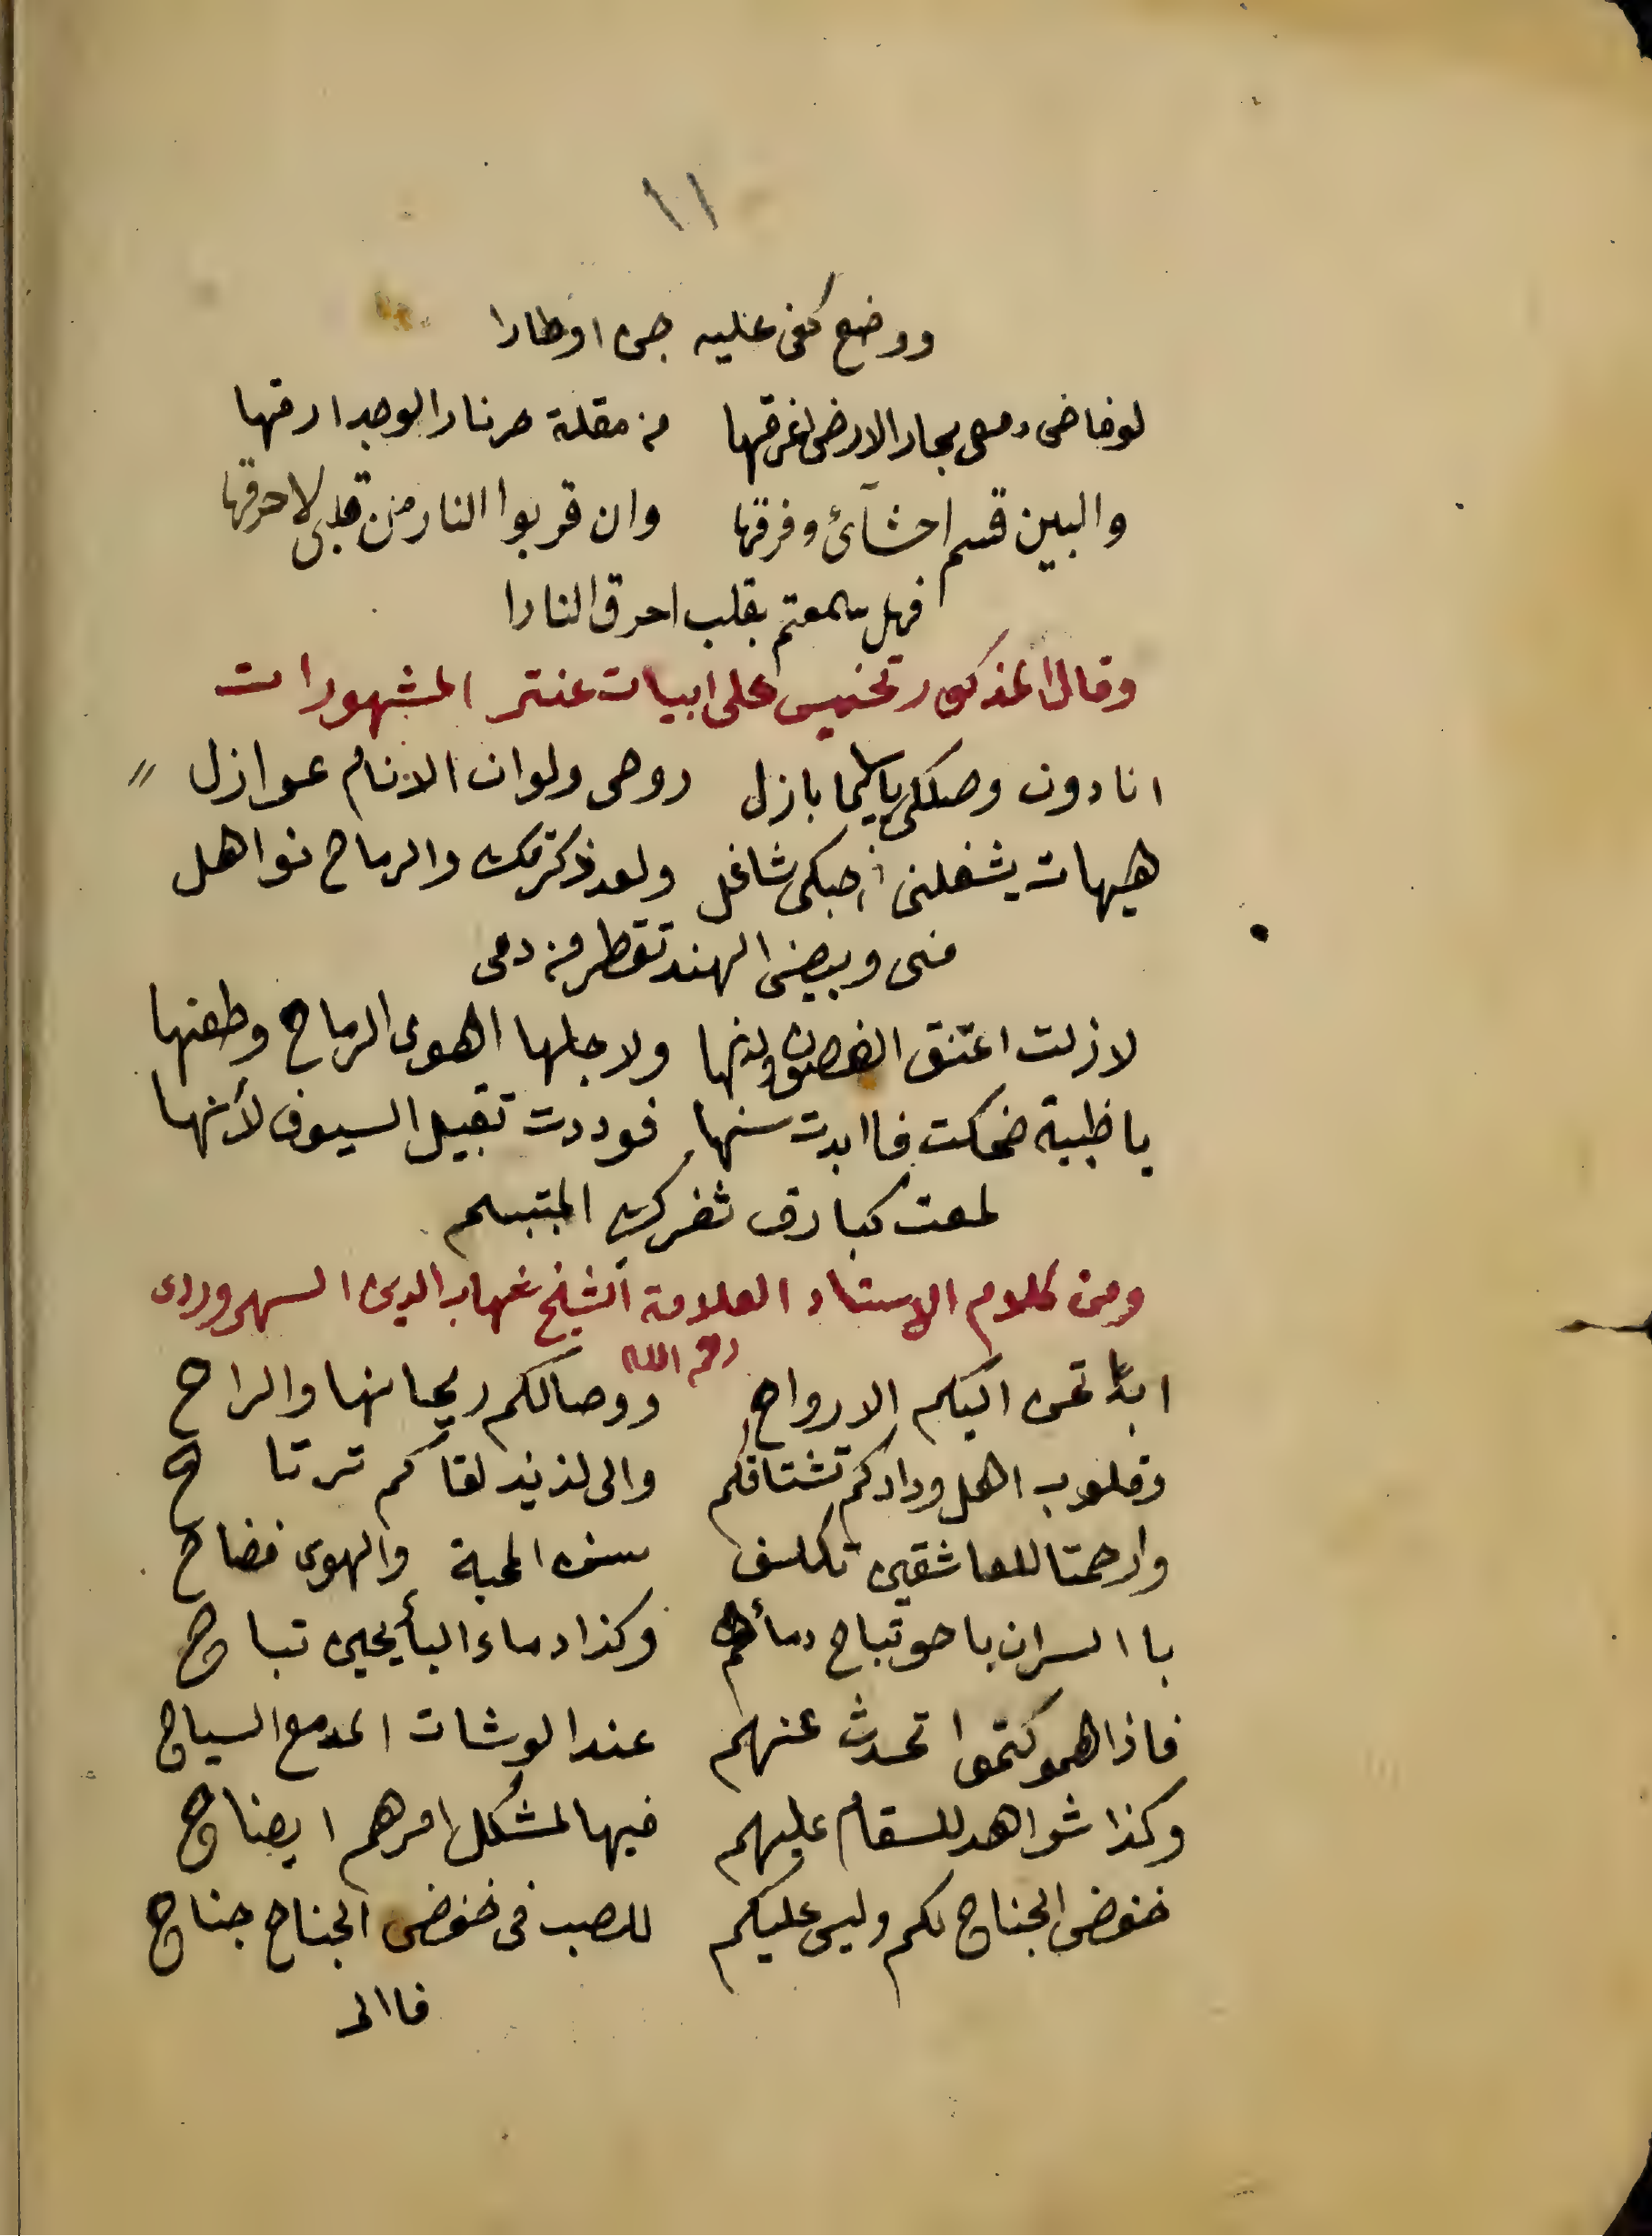 ١١
ووضع كفى عليه جى اوطارا
لوفاض دمعى بحار الارض لغرقها من مقلة حر نار الوجد ارقها
والبين قسم احشآئ وفرقها وان قربوا النار من قلبى لاحرقها
فهل سمعتم بقلب احرق النارا
وقال المذكور تخميس على ابيات عنتر المشهورات
انا دون وصلكى بازل روحى ولوان الانام عوازل
هيهات يشغلنى حبكى شاغل ولقد ذكرتك والرماح نواهل
منى وبيض الهند تقطر من دمى
لازلت اعتنق الغصون ولاجلها اهوى الرماح وطعنها
يا ظبية ضحكت فاابدت سنها فوددت تقبيل السيوف لأنها
لمعت كبارق ثغرك المتبسم
ومن كلام الاستاد العلامة الشيخ شهاب الدين السهروردى
رحمه الله
ابدا تحن اليكم الارواح ووصالكم ريحانها والراح
وقلوب اهل ودادكم تشتاقكم والى لذيذ لقاكم ترتاح
وارحمتا للعاشقين تكلف ستر المحبة والهوى فضاح
با السران باحو تباح دمأهم وكذا دماء البأيحين تباح
فاذا همو كتموا تحدث عنهم عند الوشات المدمع السياح
وكذا شواهد للسقام عليهم فيها لمشكل امرهم ايضاح
خفوض الجناح لكم وليس عليكم للصب فى خفوض الجناح جناح
فاالى